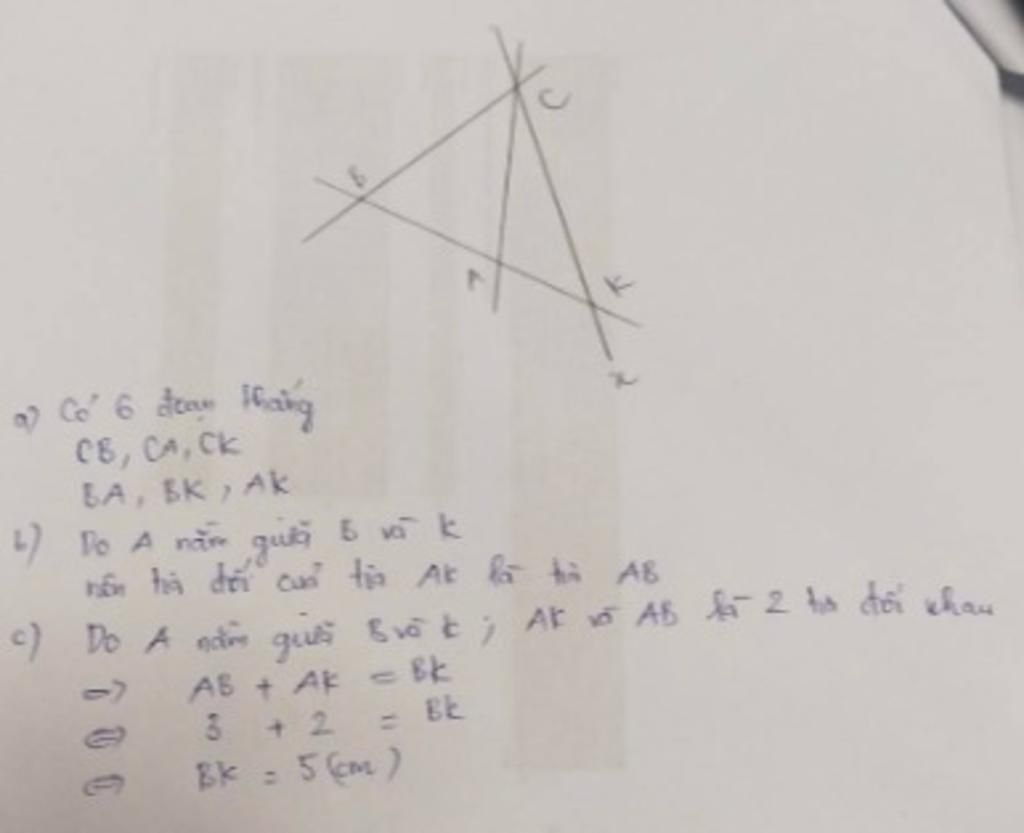 C
B
A
K
x
a) Có 6 đoạn thẳng
CB, CA, CK
BA, BK, AK
b) Do A nằm giữa B và K
nên tia đối của tia AK là tia AB
c) Do A nằm giữa B và K ; AK và AB là 2 tia đối nhau
=> AB + AK = BK
<=> 3 + 2 = BK
<=> BK = 5 (cm)